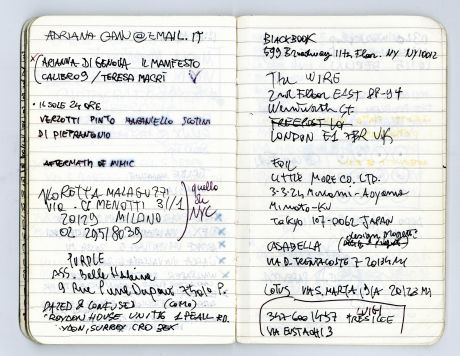 ADRIANA GAN@EMAIL.IT
ARIANNA DI GENOVA IL MANIFESTO
CALIBRO 9 / TERESA MACRI
• IL SOLE 24 ORE
VERZOTTI PINTO
DI PIETRANTONIO
AFTERMATH OF MIMIC
DOROTEA MALAGUZZI
VIA C. MENOTTI 31/1
20129 MILANO
quello
di
NYC
PURPLE
ASS. Belle Haleine
9 Rue Pierre Dupont 75010 P.
DAZED & CONFUSED (COMO)
ROYDON HOUSE UNIT
SURREY CRO
BLACKBOOK
599 Broadway 11th Floor. NY NY 10012
THE WIRE
2nd Floor EAST 88-94
Wentworth St
FREEPOST
LONDON E1 7BR UK
FOIL
LITTLE MORE CO. LTD.
3-3-24 Minami-Aoyama
Minato-KU
Tokyo 107-0062 JAPAN
CASABELLA
VIA D. TRENTACOSTE 7 20134 MI
LOTUS VIA S. MARTA 19/A 20123 MI
LUIGI
VIA EUSTACHI 3